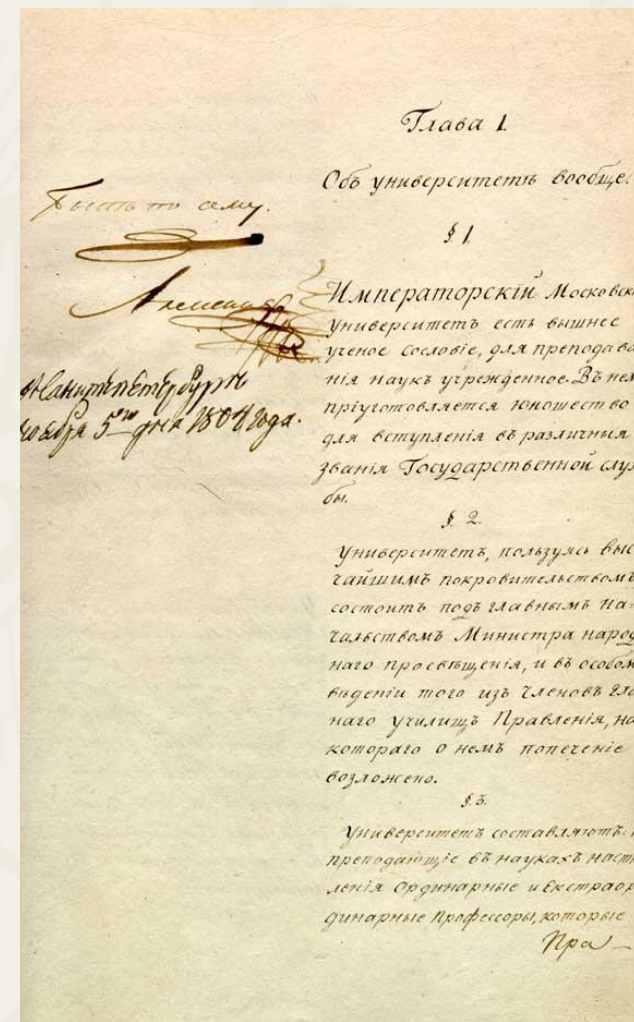 Глава 1.
Объ университетѣ вообще.
Быть по сему.
Александръ
Санктпетербургъ
Ноября 5го дня 1804 года.
§ 1.
Императорскій Московск
Университетъ есть вышнее
ученое сословіе, для преподава
нія наукъ учрежденное. Въ нем
пріуготовляется юношество
для вступленія въ различныя
званія Государственной служ
бы.
§. 2.
Университетъ, пользуясь Выс
чайшимъ покровительствомъ
состоитъ подъ главнымъ На-
чальствомъ Министра народ
наго просвѣщенія, и въ особом
вѣденіи того из членовъ Гла
наго училищъ Правленія, на
котораго о немъ попеченіе
возложено.
§. 3.
Университетъ составляютъ:
преподающіе въ наукахъ наст
ленія Ординарные и Екстраор
динарные Профессоры, которые
Пра-